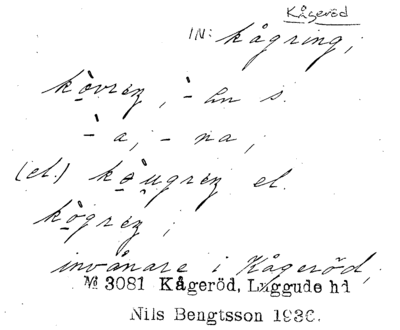 Kågeröd
IN: kågring;
kò̱vrɛŋ, ̀- ən s.
̀- a; - na;
(el.) kə̀u̯grɛŋ el.
kò̱grɛŋ;
invånare i Kågeröd;
M 3081 Kågeröd, Luggude hd
Nils Bengtsson 1936.